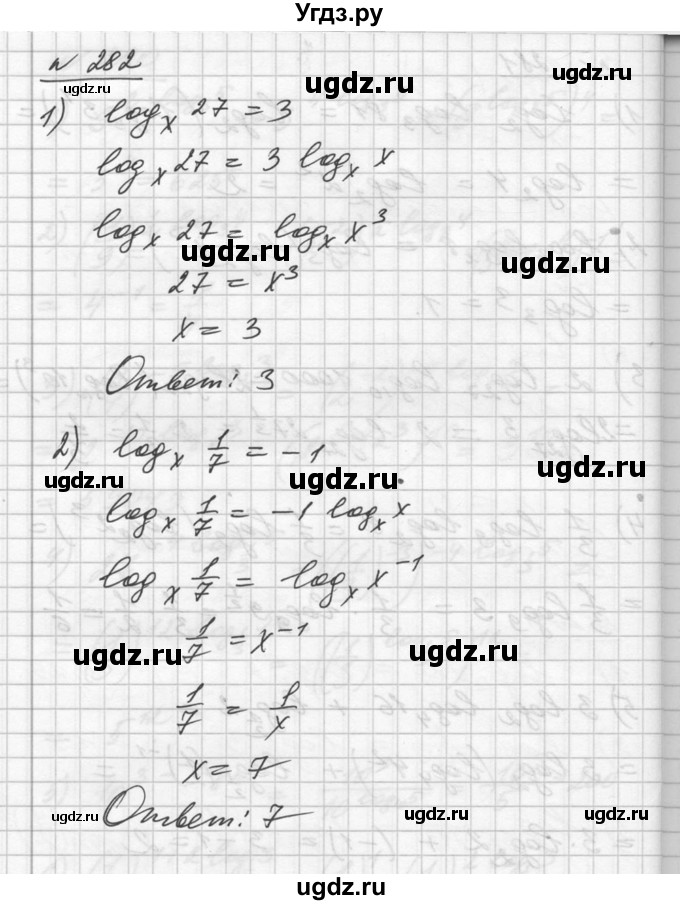 Угдз.ру
№ 282
ugdz.ru
ugdz.ru
1) logₓ 27 = 3
logₓ 27 = 3 logₓ x
logₓ 27 = logₓ x³
ugdz.ru
ugdz.ru
27 = x³
x = 3
Ответ: 3
2) logₓ 1/7 = -1
ugdz.ru
ugdz.ru
logₓ 1/7 = -1 logₓ x
logₓ 1/7 = logₓ x⁻¹
1/7 = x⁻¹
ugdz.ru
ugdz.ru
1/7 = 1/x
x = 7
Ответ: 7
ugdz.ru
ugdz.ru
ugdz.ru